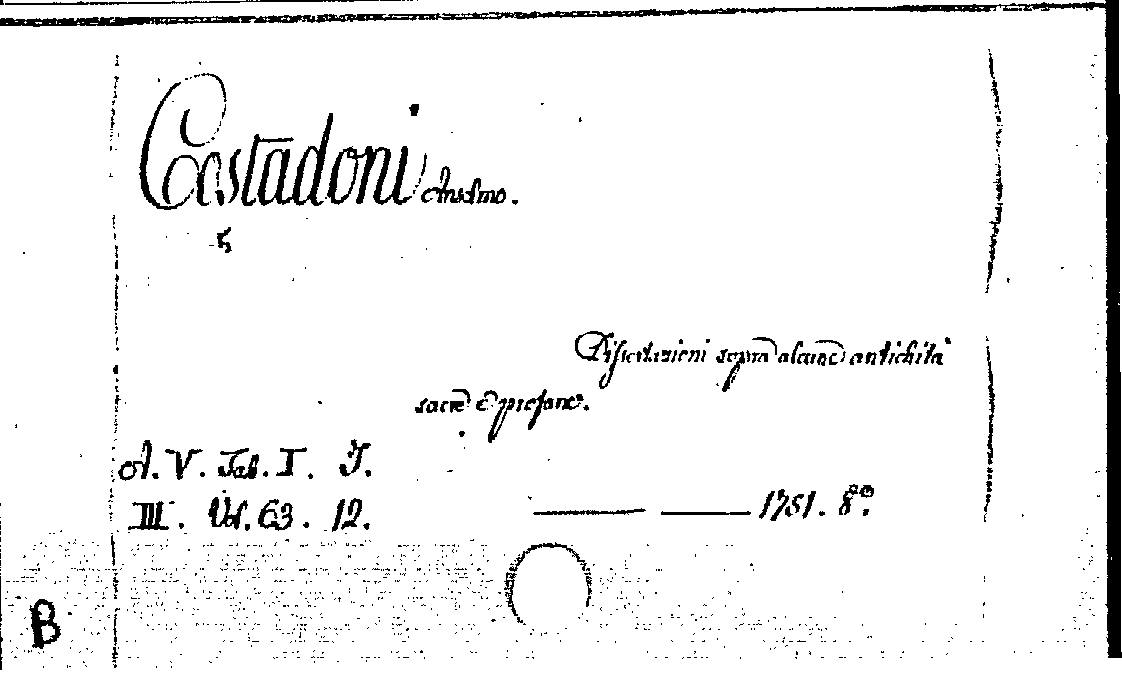 Costadoni Anselmo.
5
Dissertazioni sopra alcune antichità
sacre e profane.
A. V. Tab. I. J.
III. Vol. 63. 12. 1751. 8°.
B